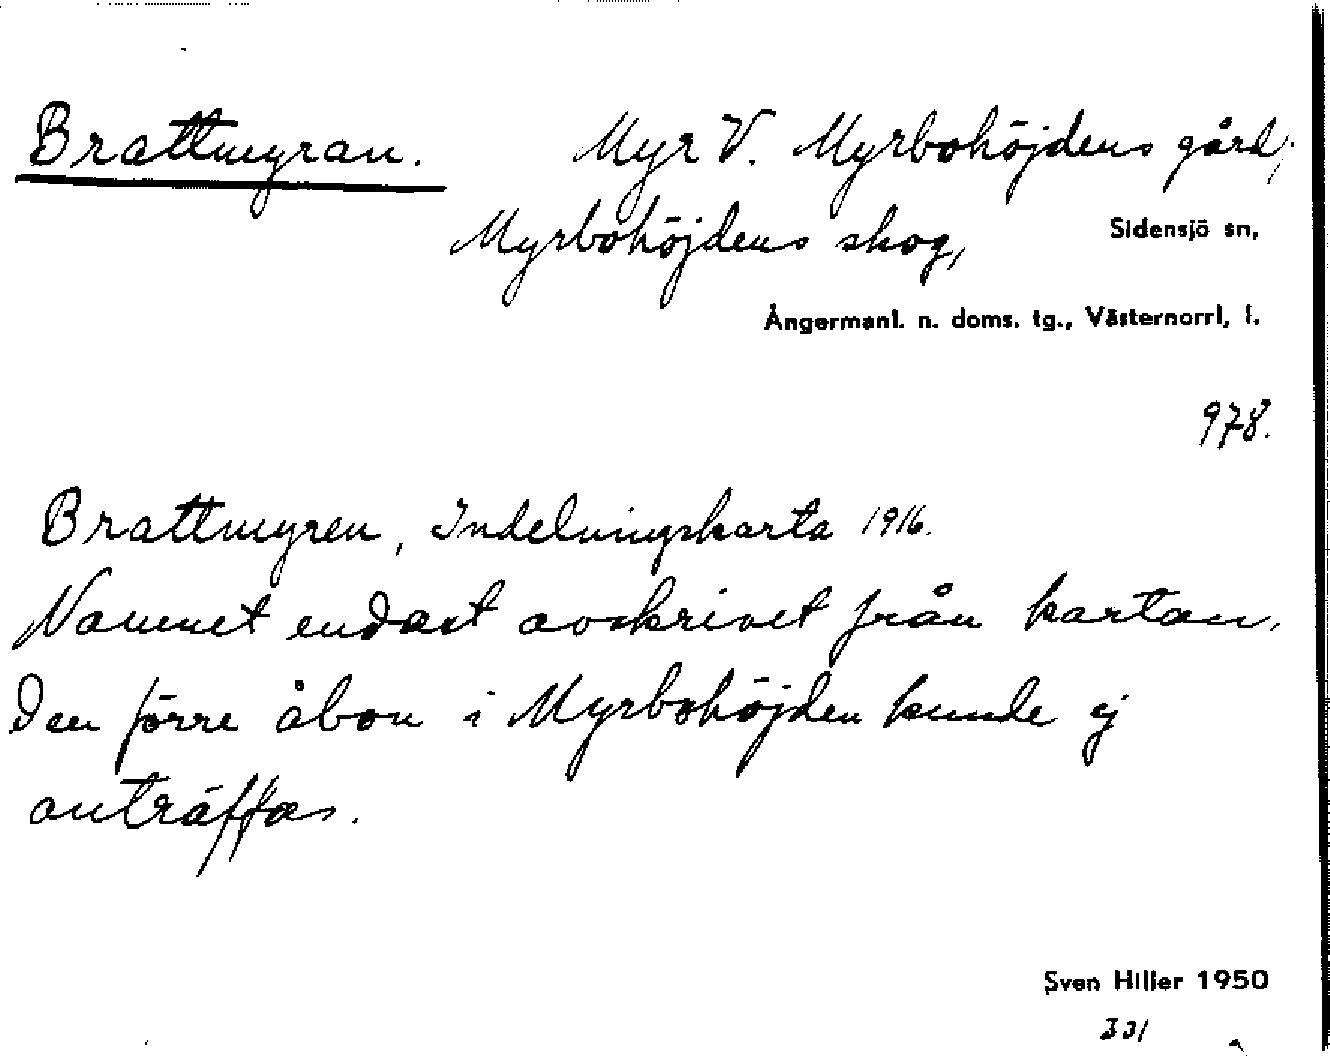 Brattmyran. Myr V. Myrbohöjdens gård;
Myrbohöjdens skog, Sidensjö sn,
Ångermanl. n. doms. tg., Västernorrl, l.
978.
Brattmyren, Indelningskarta 1916.
Namnet endast avskrivet från kartan,
Den förre åbon i Myrbohöjden kunde ej
anträffas.
Sven Hiller 1950
331